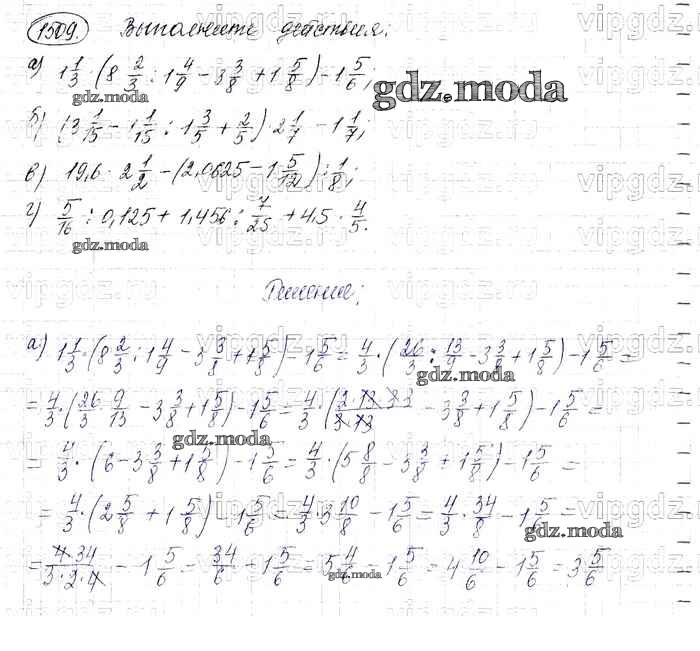 1509. Выполните действия:
а) 1 1/3 · (8 2/3 : 1 4/9 − 3 3/8 + 1 5/8) − 1 5/6;
gdz.moda
gdz.moda
б) (3 1/15 − 1 1/15 : 1 3/5 + 2/5) · 2 1/7 − 1 1/7;
в) 19,6 · 2 1/2 − (2,0625 − 1 5/12) : 1/8;
г) 5/16 : 0,125 + 1,456 : 7/25 + 4,5 · 4/5.
gdz.moda
Решение:
а) 1 1/3 · (8 2/3 : 1 4/9 − 3 3/8 + 1 5/8) − 1 5/6 = 4/3 · (26/3 : 13/9 − 3 3/8 + 1 5/8) − 1 5/6 =
gdz.moda
= 4/3 · (26/3 · 9/13 − 3 3/8 + 1 5/8) − 1 5/6 = 4/3 · (2·13·3·3/3·13 − 3 3/8 + 1 5/8) − 1 5/6 =
gdz.moda
= 4/3 · (6 − 3 3/8 + 1 5/8) − 1 5/6 = 4/3 · (5 8/8 − 3 3/8 + 1 5/8) − 1 5/6 =
= 4/3 · (2 5/8 + 1 5/8) − 1 5/6 = 4/3 · 3 10/8 − 1 5/6 = 4/3 · 34/8 − 1 5/6 =
gdz.moda
= 4·34/3·2·4 − 1 5/6 = 34/6 − 1 5/6 = 5 4/6 − 1 5/6 = 4 10/6 − 1 5/6 = 3 5/6
gdz.moda